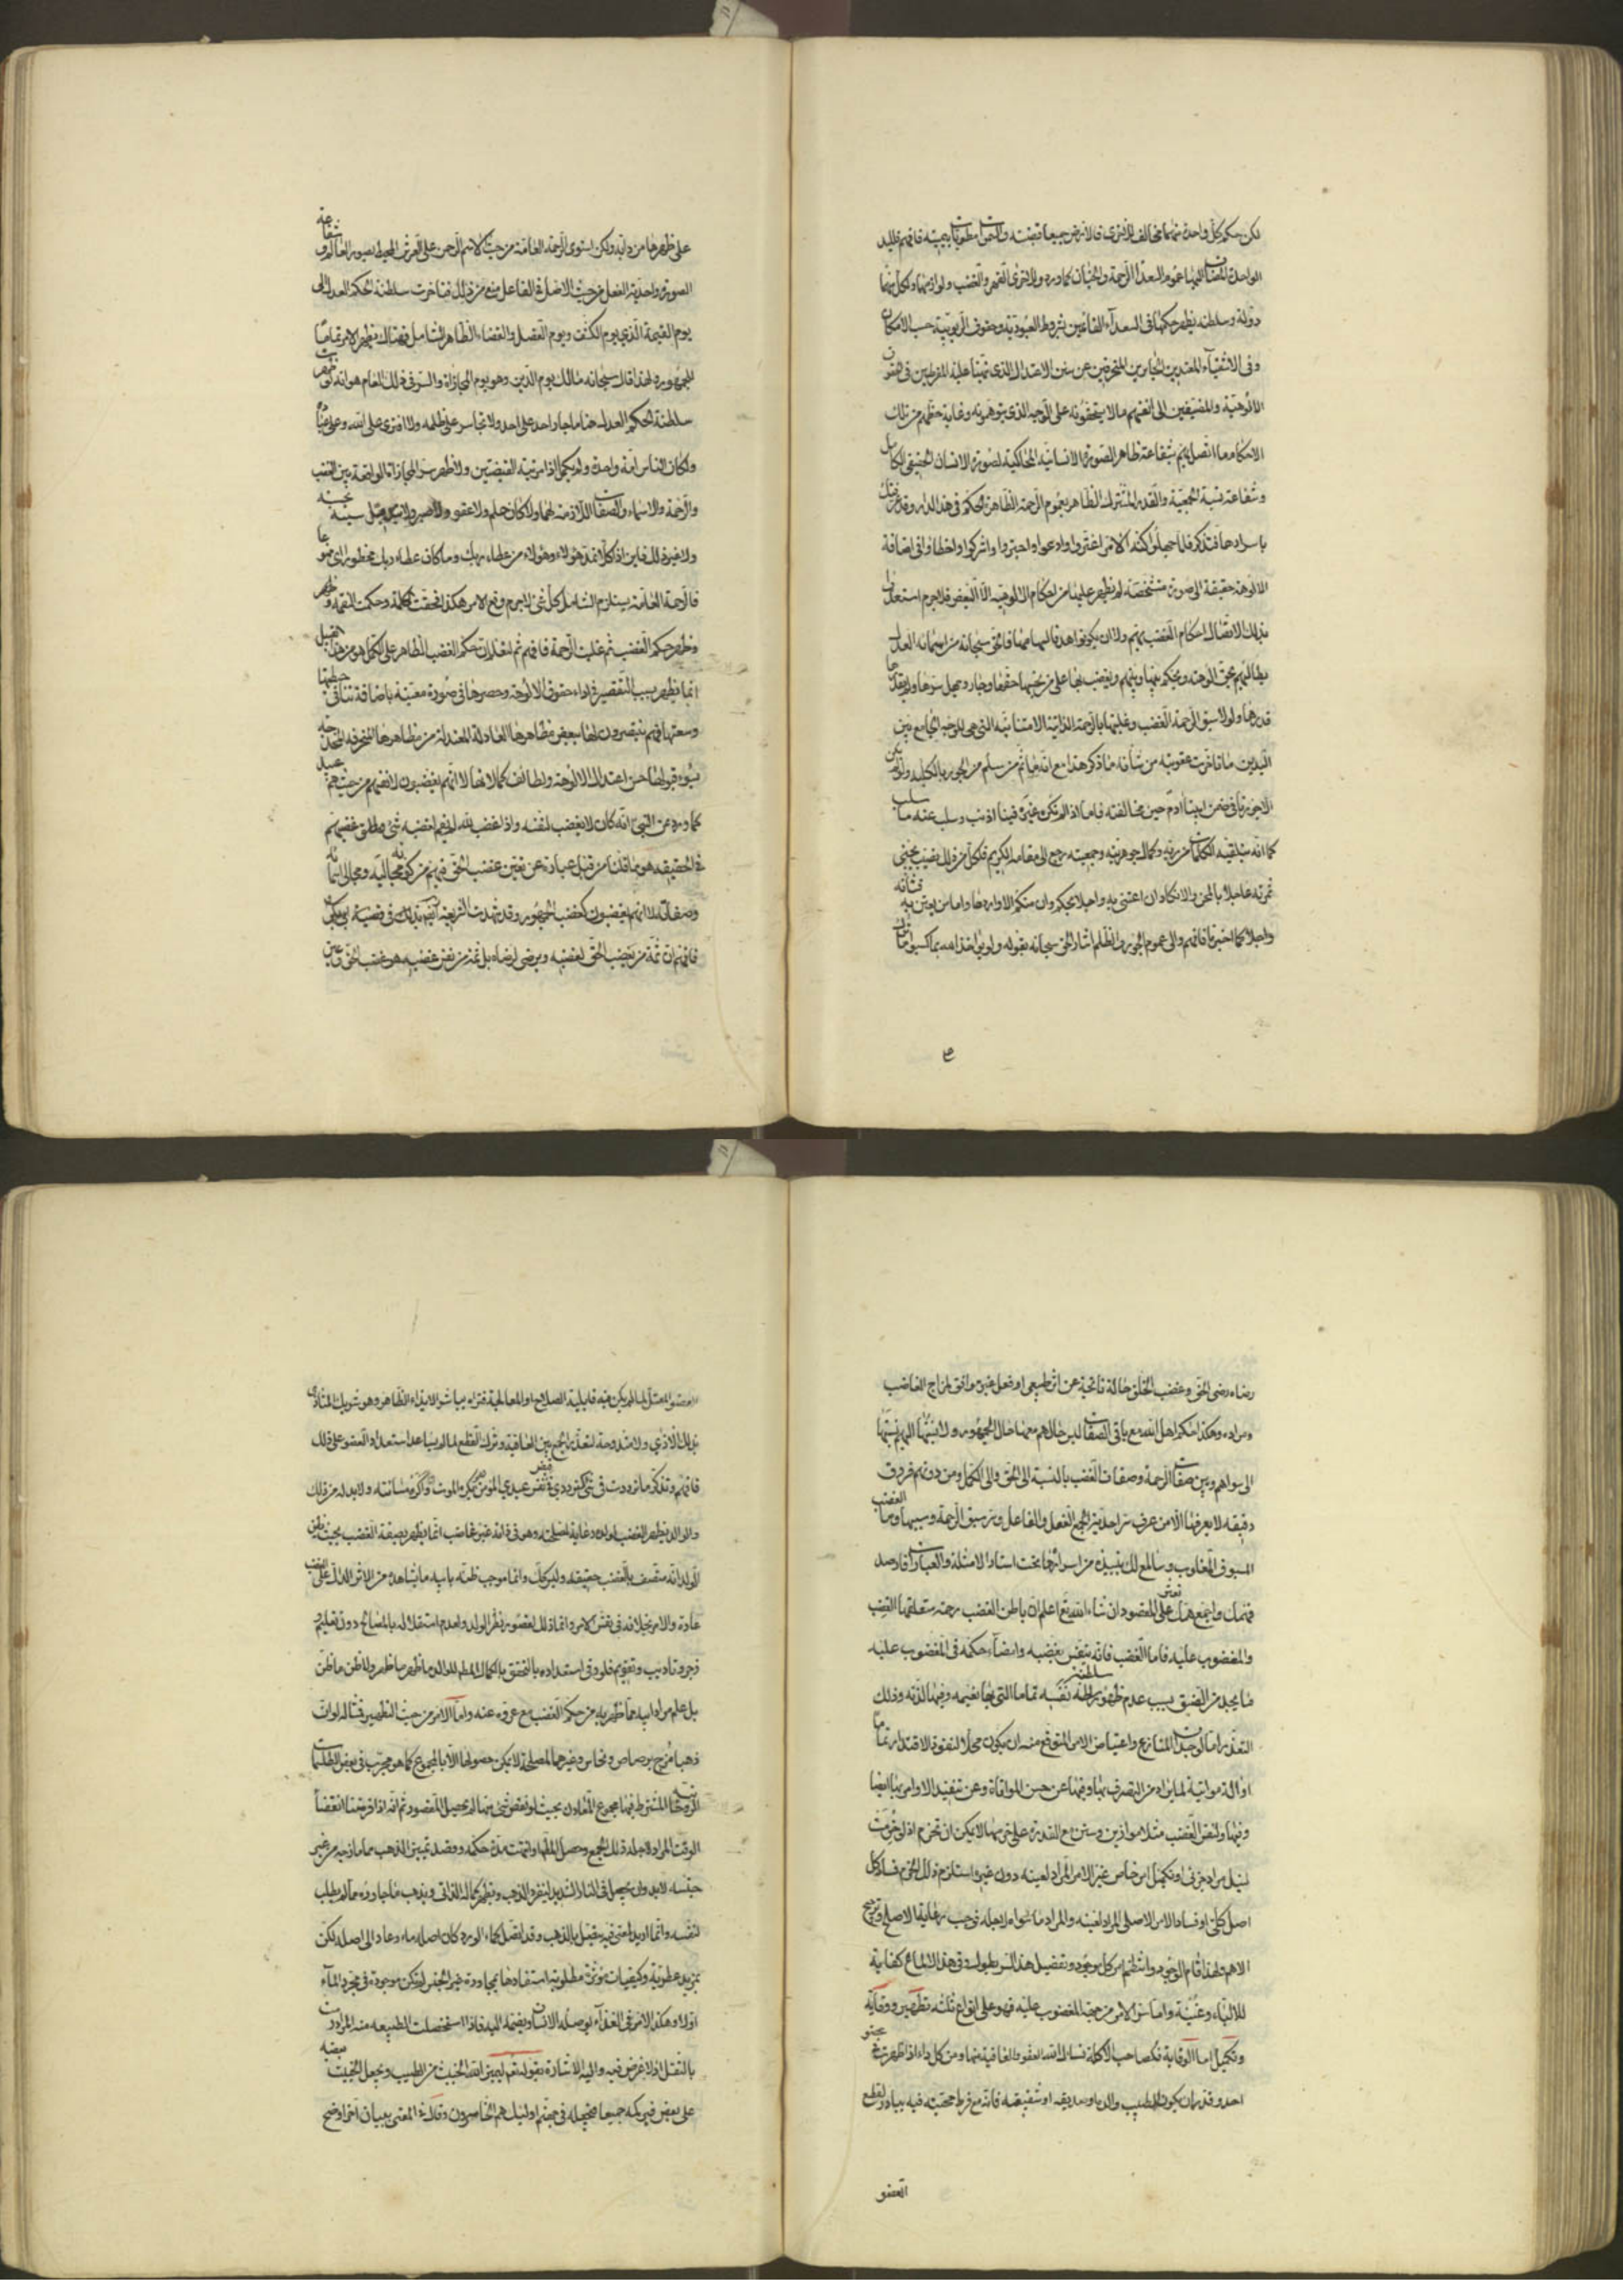 لكن حكم كل واحدة منهما مخالف للاخرى فالارض جميعا قبضته والسموات مطويات بيمينه فافهم فلليد
الواحدة المضاف اليها عموم السعداء الرحمة والحنان كما ورد وللاخرى القهر والغضب ولوازمهما ولكل منهما
دولة وسلطنة يظهر حكمها فى السعداء القائمين بشروط العبودية وحقوق الربوبية حسب الامكان
وفى الاشقياء المعتدين الجايرين المنحرفين عن سنن الاعتدال الذى نبهنا عليه المفرطين فى حقوق
الالوهية والمضيفين الى انفسهم ما لا يستحقونه على الوجه الذى يتوهمونه وغاية حظهم من تلك
الاحكام ما اتصل بهم بشفاعة ظاهر الصورة الانسانية المحاكية لصورة الانسان الحقيقى الكامل
وشفاعة نسبة الجمعية والقدر المشترك الظاهر بعموم الرحمة الظاهرة الحكم فى هذه الدار وقد عرفتك
باسرارها فتذكر فلما جهلوا كنه الامر اغتروا وادعوا واجتروا واشركوا واخطاوا فى اضافة
الالوهة حقيقة الى صورة متشخصة لم يظهر عليها من احكام الالوهية الا البعض فلا جرم استعدوا
بذلك الاتصال احكام الغضب بهم ولان يكونوا هدفا لسهامها فالحق سبحانه من اسمائه العدل
يطالبهم بحق الوهته ويحكم بينها وبينهم ويغضب لها على من بخسها حقها وجار وجهل سرها ولم يقدرها
قدرها ولولا سبق الرحمة الغضب وغلبتها بالرحمة الذاتية الامتنانية التى هى للوجه الجامع بين
اليدين ما تاخرت عقوبة من شانه ما ذكر هذا مع انه ما ثم من سلم من الجور بالكلية ولو لم يكن
الا جورنا فى ضمن ابينا ادم حين مخالفته فاما اذا لم نكن غيره فينا اذنب وسلب عنه ما سلب
كما انه بتلقيه الكلمات من ربه وكمال جوهريته وجمعيته رجع الى مقامه الكريم فكل من ذلك نصيب يجنى
ثمرته عاجلا بالمحن والانكاد ان اعتنى به واجلا بحكم وان منكم الا واردها واما من يعتن به فشانه
واجلا كما اخبرنا فافهم والى عموم الجور والظلم اشار الحق سبحانه بقوله ولو يواخذ الله بما كسبوا ما ترك
على ظهرها من دابة ولكن استوى الرحمة العامة من حيث الاسم الرحمن على العرش المحيط بصور العالم وشفاعة
الصورة واحدية الفعل من حيث الاصل فى الفاعل منع من ذلك فتاخرت سلطنة الحكم العدل الى
يوم القيمة الذى يوم الكشف ويوم الفصل والقضاء الظاهر الشامل فهناك يظهر الامر تماما
للجمهور ولهذا قال سبحانه مالك يوم الدين وهو يوم المجازاة والسر فى ذلك العام هو انه لو ظهرت
سلطنة الحكم العدل هنا ما جار احد على احد ولا تجاسر على ظلمه ولا افترى على الله وعلى عباده
ولكان الناس امة واحدة ولم يكمل اذا مرتبة القبضتين ولا ظهر سر المجازاة الواقعة بين الغضب
والرحمة والاسماء والصفات اللازمة لهما ولا كان حلم ولا عفو ولا صبر ولا تبديل سيئة بحسنة
ولا غير ذلك فاين اذا كلا نمد هؤلاء وهؤلاء من عطاء ربك وما كان عطاء ربك محظورا اى ممنوعا
فالرحمة العامة يستلزم الشامل كل شئ لا جرم وقع الامر هكذا فحقت الكلمة وحكمت النقمة وظهر
وظهر حكم الغضب ثم غلبت الرحمة فافهم ثم لتعلم ان حكم الغضب الظاهر على الكمل هو من هذا القبيل
انما يظهر بسبب التقصير فى اداء حقوق الالوهة وحصرها فى صورة معينة باضافة تنافى حيطتها
وسعتها فهم ينتصرون لها ببعض مظاهرها العادلة المعتدلة من مظاهرها المنحرفة المخدجة
بسوء قبولها حسن اعتدال الالوهة ولطائف كمالاتها لا انهم يغضبون لانفسهم من حيث هم عبيد
كما ورد عن النبى انه كان لا يغضب لنفسه واذا غضب لله لم يقم لغضبه شئ ومطلق غضبهم
فى الحقيقة هو ما قلت من قبل عبارة عن تعين غضب الحق فيهم من كونهم مجاليه ومجالى اسمائه
وصفاته لا انهم يغضبون كغضب الجمهور وقد شهدت الشريعة ايضا بذلك فى قضية ابى بكر
فافهم ان ثمة من يغضب الحق لغضبه ويرضى لرضاه بل ثمة من نفس غضبه هو غضب الحق وعين
رضاه رضى الحق وغضب الخلق حالة ناتجة عن اثر طبيعى او فعل غير موافق لمزاج الغاضب
ومراده وهكذا حكم اهل الله مع باقى الصفات ليس حالهم معها حال الجمهور ولا نسبتها اليهم نسبتها
الى سواهم وبين صفات الرحمة وصفات الغضب بالنسبة الى الحق والى الكمل ومن دونهم فروق
دقيقة لا يعرفها الا من عرف سر احدية الجمع الفعل والفاعل وسر سبق الرحمة وسببها وما الغضب
المسبوق المغلوب وسالمع لك بنبذة من اسرارها تحت استار الامثلة والعبارات فارصد
فهمك واجمع همك تعثر على المقصود ان شاء الله تع اعلم ان باطن الغضب رحمة متعلقها الغضب
والمغضوب عليه فاما الغضب فانه ينفس بغضبه وامضاء حكمه فى المغضوب عليه
ما يجده من الضيق بسبب عدم ظهور سلطنة نفسه تماما التى بها نعيمه وفيها لذته وذلك
التعذر اما لوجدان المنازع واعتياض الامر المتوقع منه ان يكون محلا لنفوذ الاقتدار تماما
او الة مواتية لما يراد من التصرف بها وفيها عن حسن المواتاة وعن تنفيذ الاوامر بها ايضا
وفيها
لنيل مراد جزئى وتكميل امر خاص غير الامر المراد لعينه دون غيره استلزم ذلك الخرم فساد كل
اصل كلى او فساد الامر الاصلى المراد لعينه والمراد ما سواه لاجله فوجب رعاية الاصلح وترجيح
الاهم فلهذا قام الوجود وانتظم امر كل موجود وتفصيل هذا السر يطول وفى هذا الالماع كفاية
للالباء وغنية واما سر الامر من جهة المغضوب عليه فهو على انواع ثلثة تطهير ووقاية
وتكميل اما الوقاية فكصاحب الاكلة نسال الله العفو والعافية منها ومن كل داء اذا ظهرت فى عضو
احد وقدر ان يكون الطبيب والده او صديقه او شقيقه فانه مع فرط محبته فيه يبادر لقطع
العضو
العضو المعتل لما لم يكن فيه قابلية الصلاح او المعالجة فتراه يباشر الايذاء الظاهر وهو شريك المتاذى
بذلك الاذى ولا مندوحة لتعذر الجمع بين العافية وترك القطع لما لم يساعد استعداد العضو على ذلك
فافهم وتذكر ما ترددت فى شئ كترددى فى قبض نفس عبدى المؤمن يكره الموت واكره مسائته ولا بد له من ذلك
والوالد يظهر الغضب لولده رعاية لمصلحته وهو فى ذاته غير غاضب انما يظهر بصفة الغضب بحيث يظن
الولد انه متصف بالغضب حقيقة وليس كذلك وانما موجب ظنه بابيه ما يشاهده من الاثر الدال على الغضب
عادة والامر بخلافه فى نفس الامر وانما ذلك لقصور نظر الولد ولعدم استقلاله بالمصالح دون تعليم
وزجر وتاديب وتقويم فلو وفى استعداده بالتحقق بالكمال المطلوب للوالد ما ظهر ما ظهر ولا ظن ما ظن
بل علم مراد ابيه مما ظهر به من حكم الغضب مع عروه عنه واما الامر من حيث التطهير فمثاله لو ان
ذهبا مزج برصاص ونحاس وغيرهما لمصلحة لا يمكن حصولها الا بالمجموع كما هو مجرب فى بعض الطلسمات
الروحانية المشترط فيها مجموع المعادن بحيث لو نقص شئ منها لم يحصل المقصود ثم انه اذا فرضنا انقضاء
الوقت المراد لاجله ذلك الجمع وحصل المطلوب او انتهت مدة حكمه وقصد تمييز الذهب مما مازجه من غير
جنسه لا بد وان يجعل فى النار الشديدة لينفرد الذهب ويظهر كماله الذاتى ويذهب ما جاوره مما لم يطلب
لنفسه وانما اريد لمعنى فيه يتصل بالذهب وقد اتصل كماء الورد كان اصله ماء وعاد الى اصله لكن
بمزيد عطرية وكيفيات مؤثرة مطلوبة استفادها بمجاورة غير الجنس لم تكن موجودة فى مجرد الماء
اولا وهكذا الامر فى الغذاء يوصله الانسان ويضمه اليه فاذا استخلصت الطبيعة منه المراد رمت
بالثفل اذ لا غرض فيه واليه الاشارة بقوله تعم ليميز الله الخبيث من الطيب ويجعل الخبيث بعضه
على بعض فيركمه جميعا فيجعله فى جهنم اولئك هم الخاسرون وقال فى هذا المعنى ببيان اخر اوضح